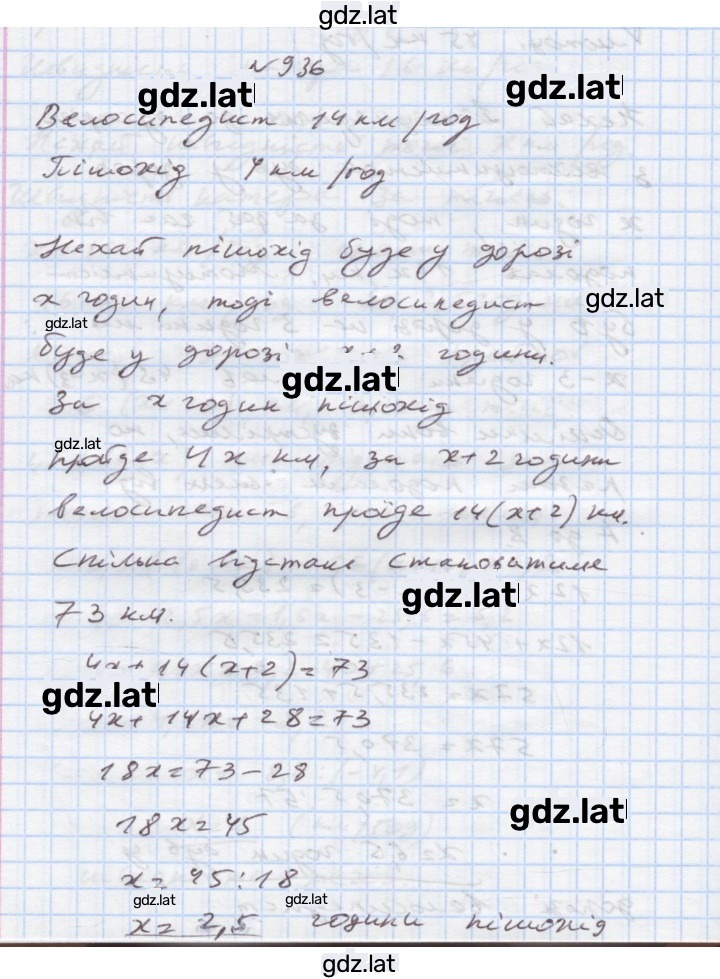 gdz.lat
№936
gdz.lat
gdz.lat
Велосипедист 14 км/год
Пішохід 4 км/год
Нехай пішохід буде у дорозі
х годин, тоді велосипедист
gdz.lat
gdz.lat
буде у дорозі х+2 години.
gdz.lat
За х годин пішохід
gdz.lat
пройде 4х км, за х+2 години
велосипедист проїде 14(х+2) км.
Спільна відстань становитиме
gdz.lat
73 км.
4х+14(х+2)=73
gdz.lat
4х+14х+28=73
18х=73-28
gdz.lat
18х=45
х=45:18
gdz.lat
gdz.lat
х=2,5 години пішохід
gdz.lat